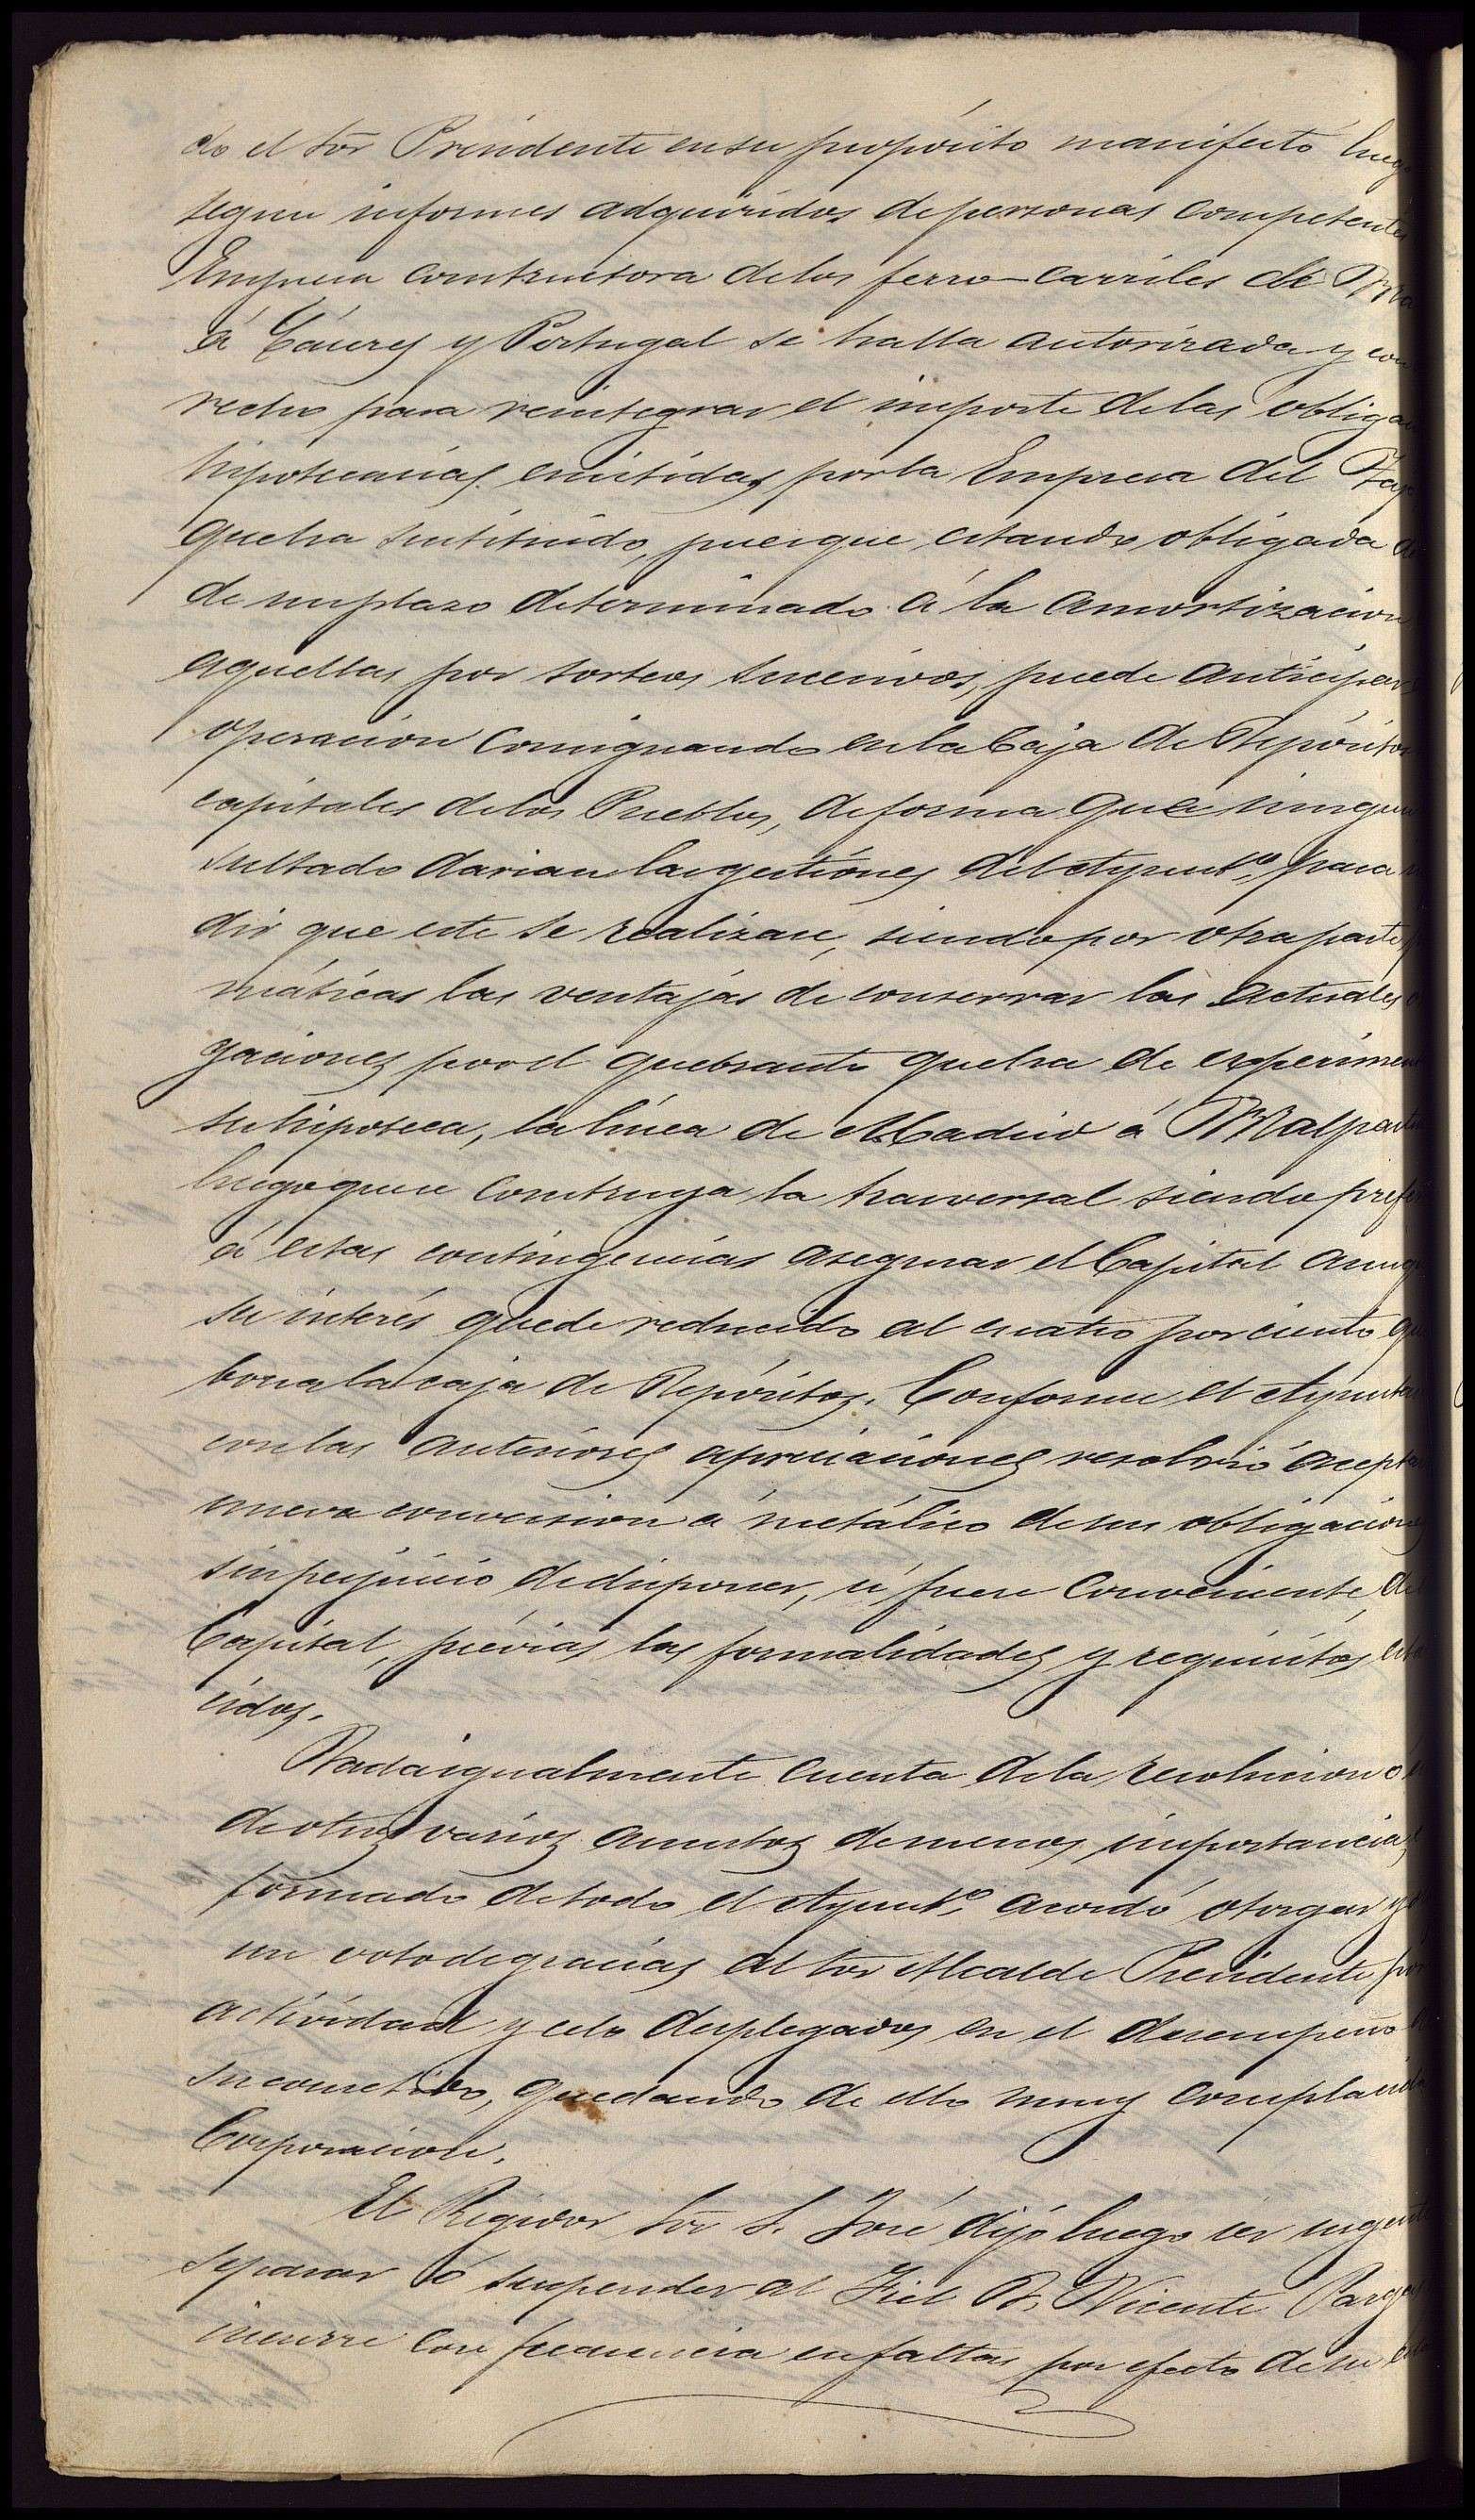 do el Sor Presidente en su propósito manifestó lueg
segun informes adquiridos de personas competentes
Empresa constructora de los ferro-carriles de Ma
á Cáceres y Portugal se halla autorizada y con
recho para reintegrar el importe de las obliga
hipotecarias emitidas por la Empresa del Taj
que ha sustituido, pues que estando obligada de
de un plazo determinado á la amortizacion
aquellas por sorteos sucesivos, puede anticipar
operacion consignando en la Caja de Depósitos
capitales de los Pueblos, de forma que ningun
sultado darian las gestiones del Ayunto. para
dir que este se realizase, siendo por otra parte
máticas las ventajas de conservar las actuales
gaciones por el quebranto que ha de experimen
su hipoteca, la línea de Madrid á Malpart
luego que se construya la trasversal siendo prefe
á estas contingencias asegurar el Capital aunq
su interés quede reducido al cuatro por ciento q
bona la caja de Depósitos. Conforme el Ayunta
con las anteriores apreciaciones resolvió acepta
nueva conversion á metálico de sus obligacion
sin perjuicio de disponer, si fuere conveniente de
Capital, prévias las formalidades y requisitos
cidos.
Dada igualmente cuenta de la resolucion
de otros varios asuntos de menos importancia
formado de todo el Ayunto. acordó otorgar y
un voto de gracias al Sor Alcalde Presidente por
actividad y celo desplegados en el desempeño
su cometido, quedando de ello muy complacida
Corporacion.
El Regidor Sor S. José dijo luego ser urgent
separar ó suspender al Fiel D. Vicente
incurre con frecuencia en faltas por efecto de su